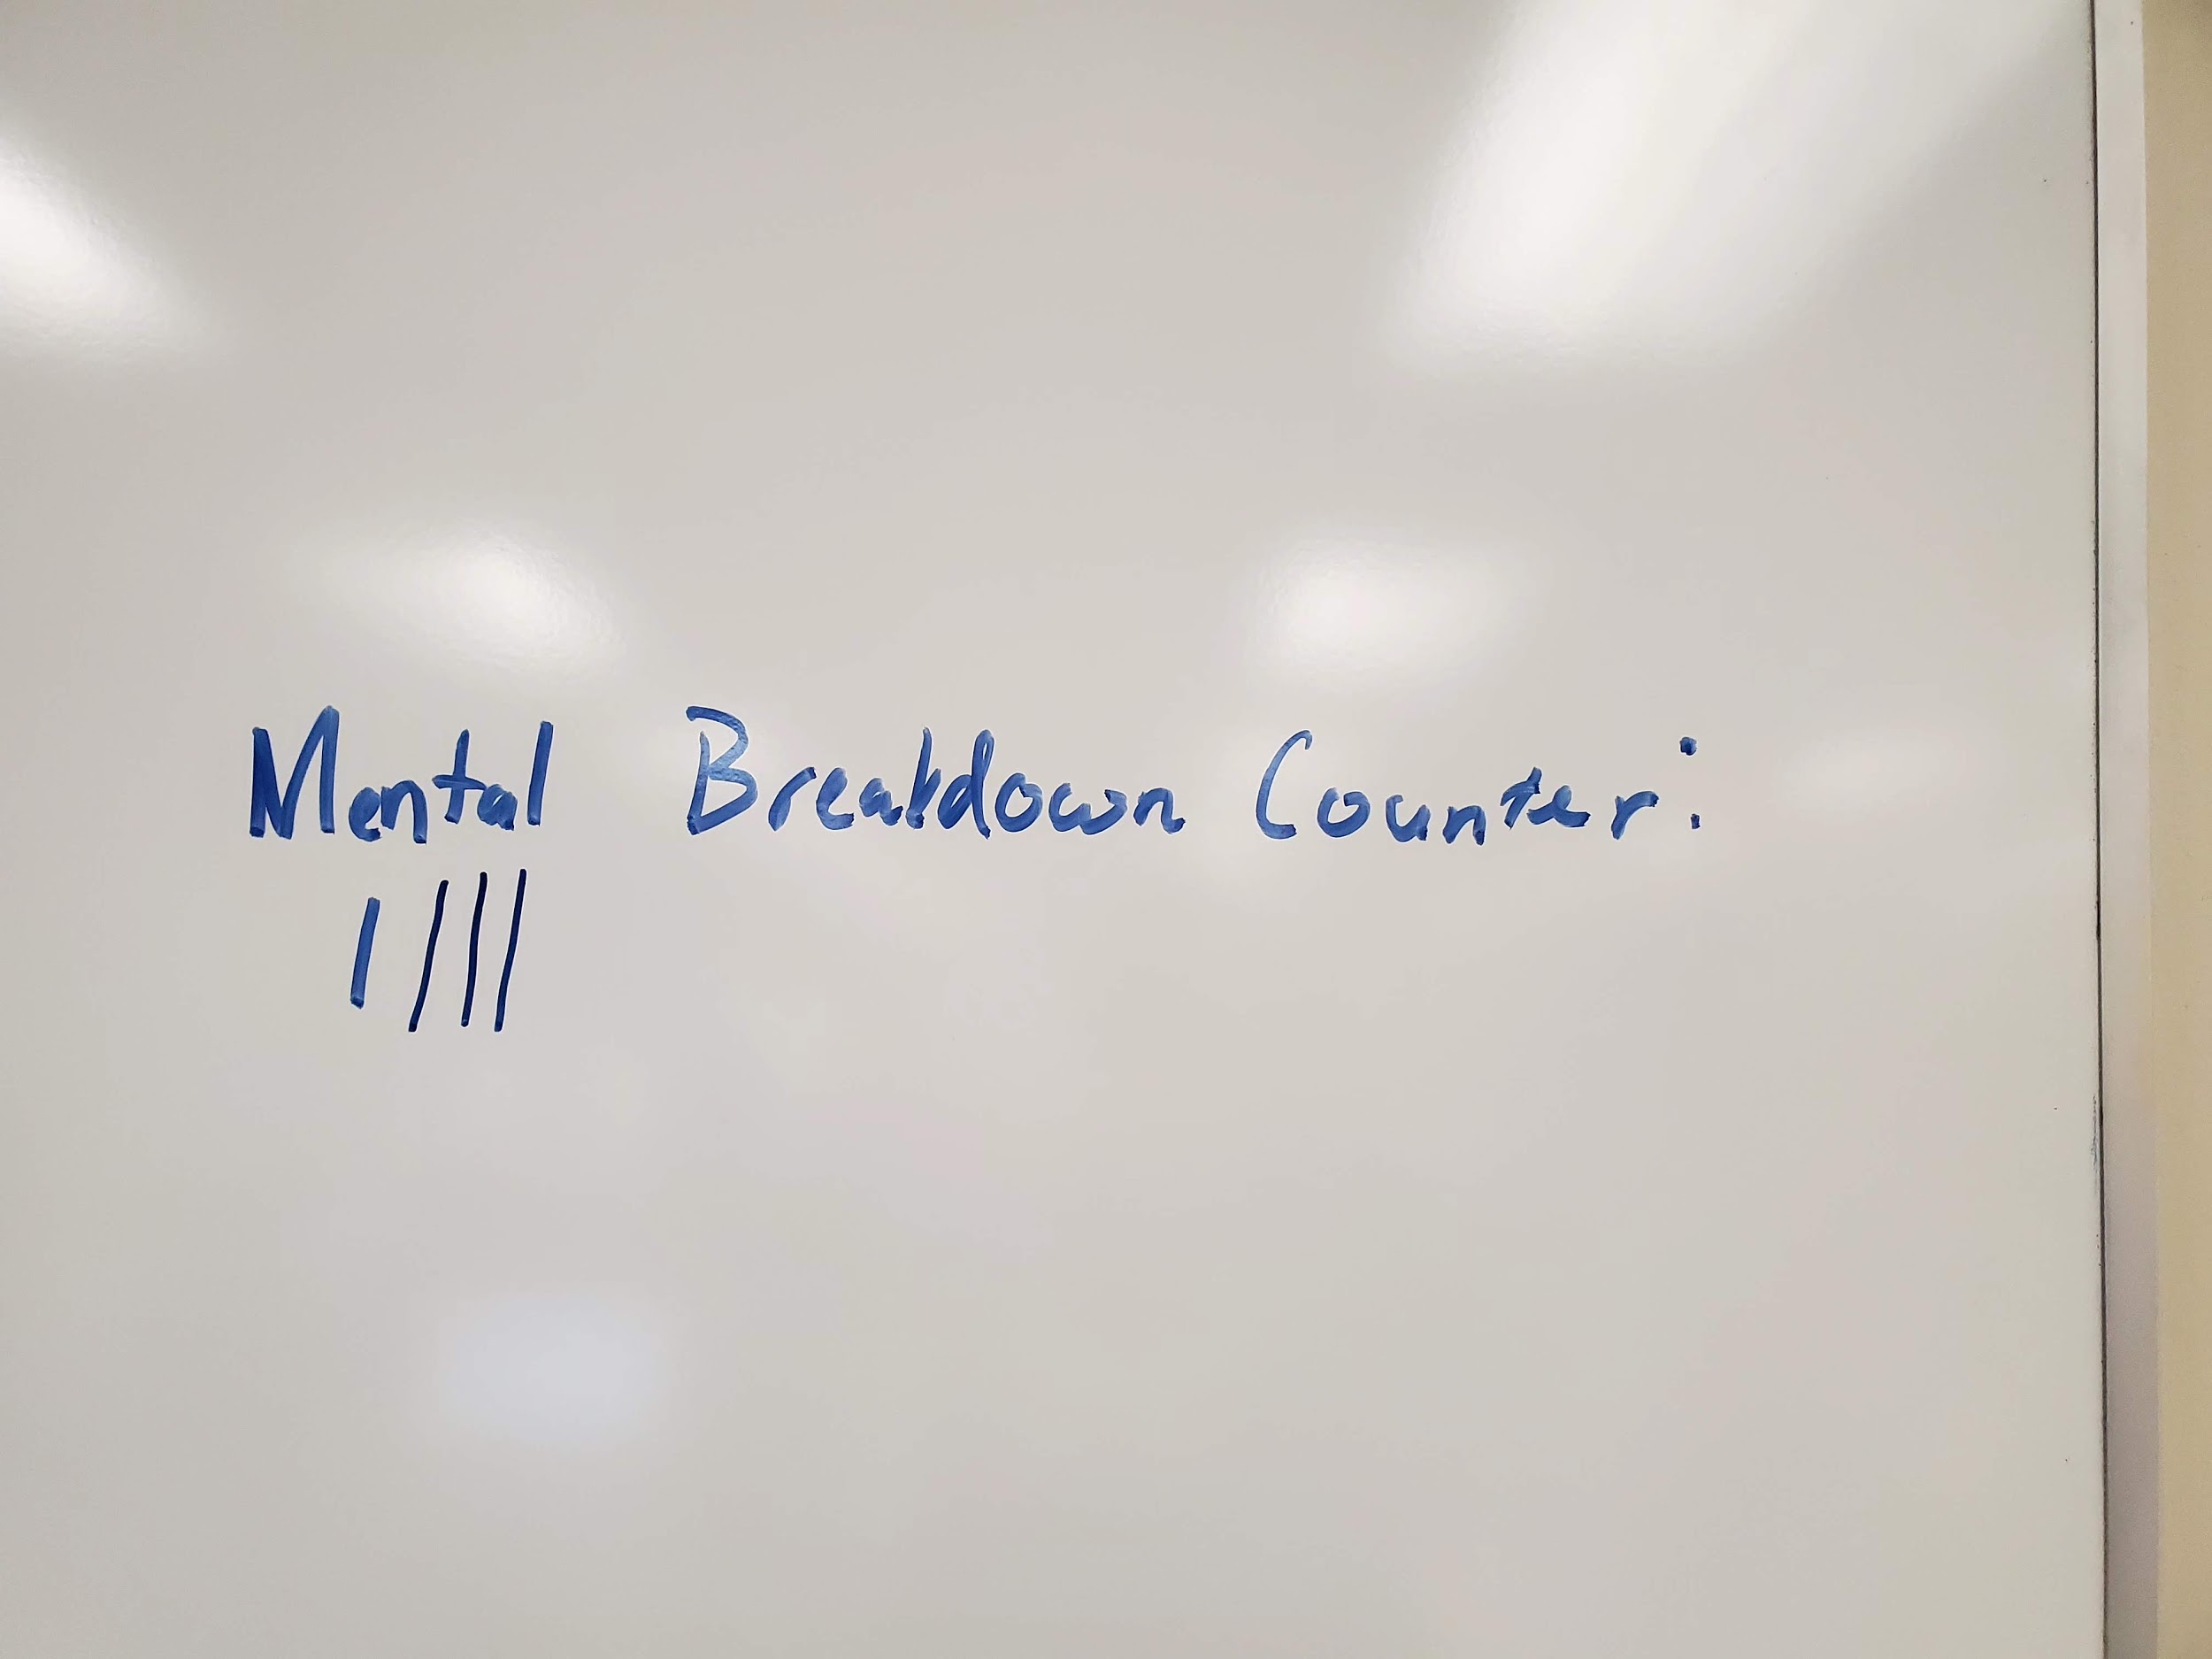 Mental Breakdown Counter:
||||